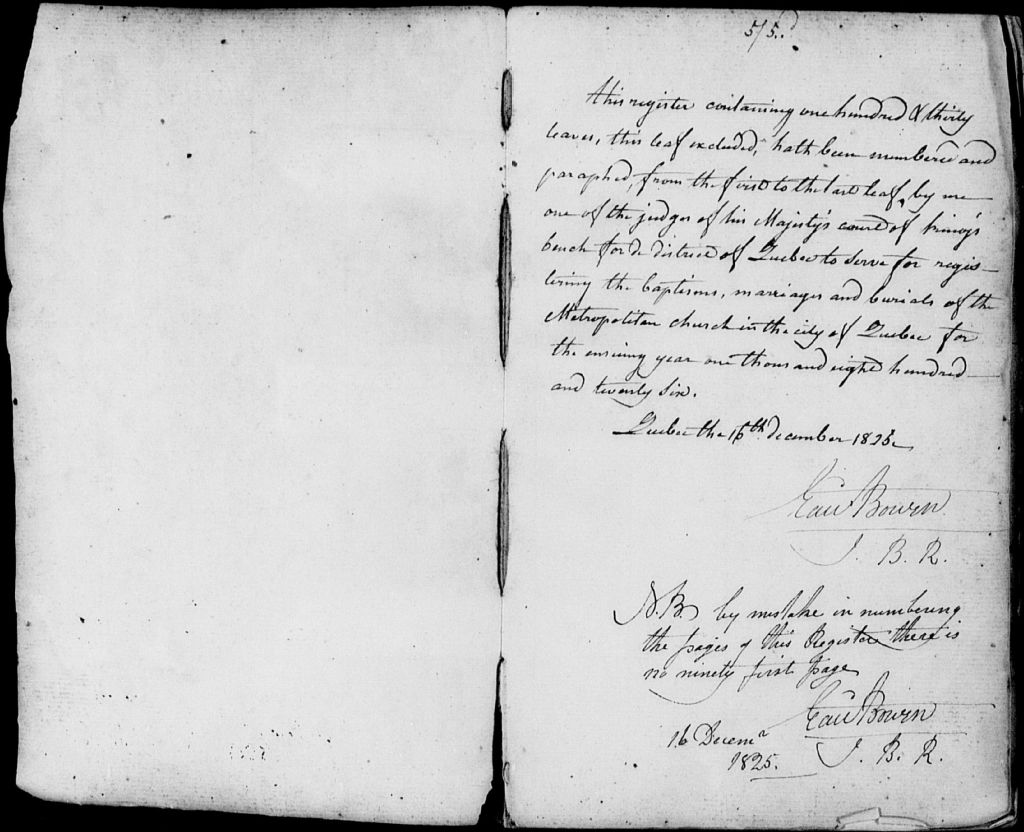 5/5.
this register containing one hundred & thirty
leaves, this leaf excluded, hath been numbered and
paraphed, from the first to the last leaf, by me
one of the judges of his Majesty's court of king's
bench for de district of Quebec to serve for regis-
tering the baptisms, marriages and burials of the
Metropolitan church in the city of Quebec for
the ensuing year one thousand eight hundred
and twenty six.
Quebec the 16th december 1825
Edw Bowen
J. B. R.
N.B. by mistake in numbering
the pages of this Register there is
no ninety first page
Edw Bowen
J. B. R.
16 Decemr
1825.